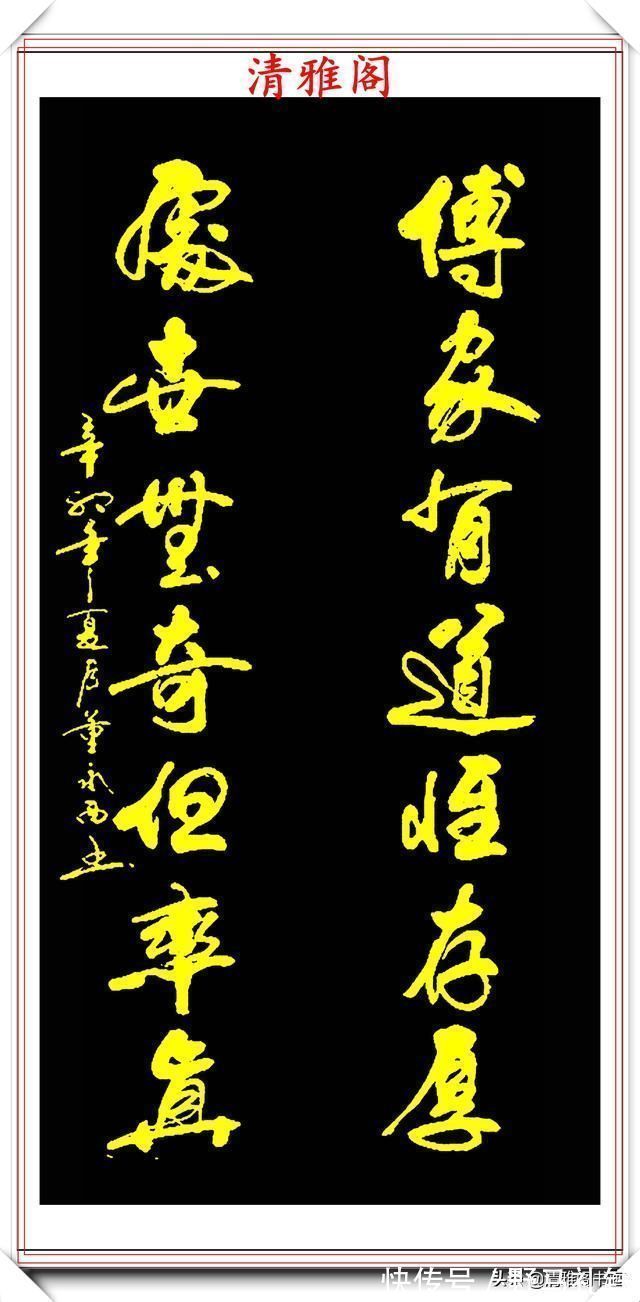 清雅阁
傳家有道惟存厚
處世無奇但率真
辛卯年之夏月董永西书
快传号
头条@清雅阁书画